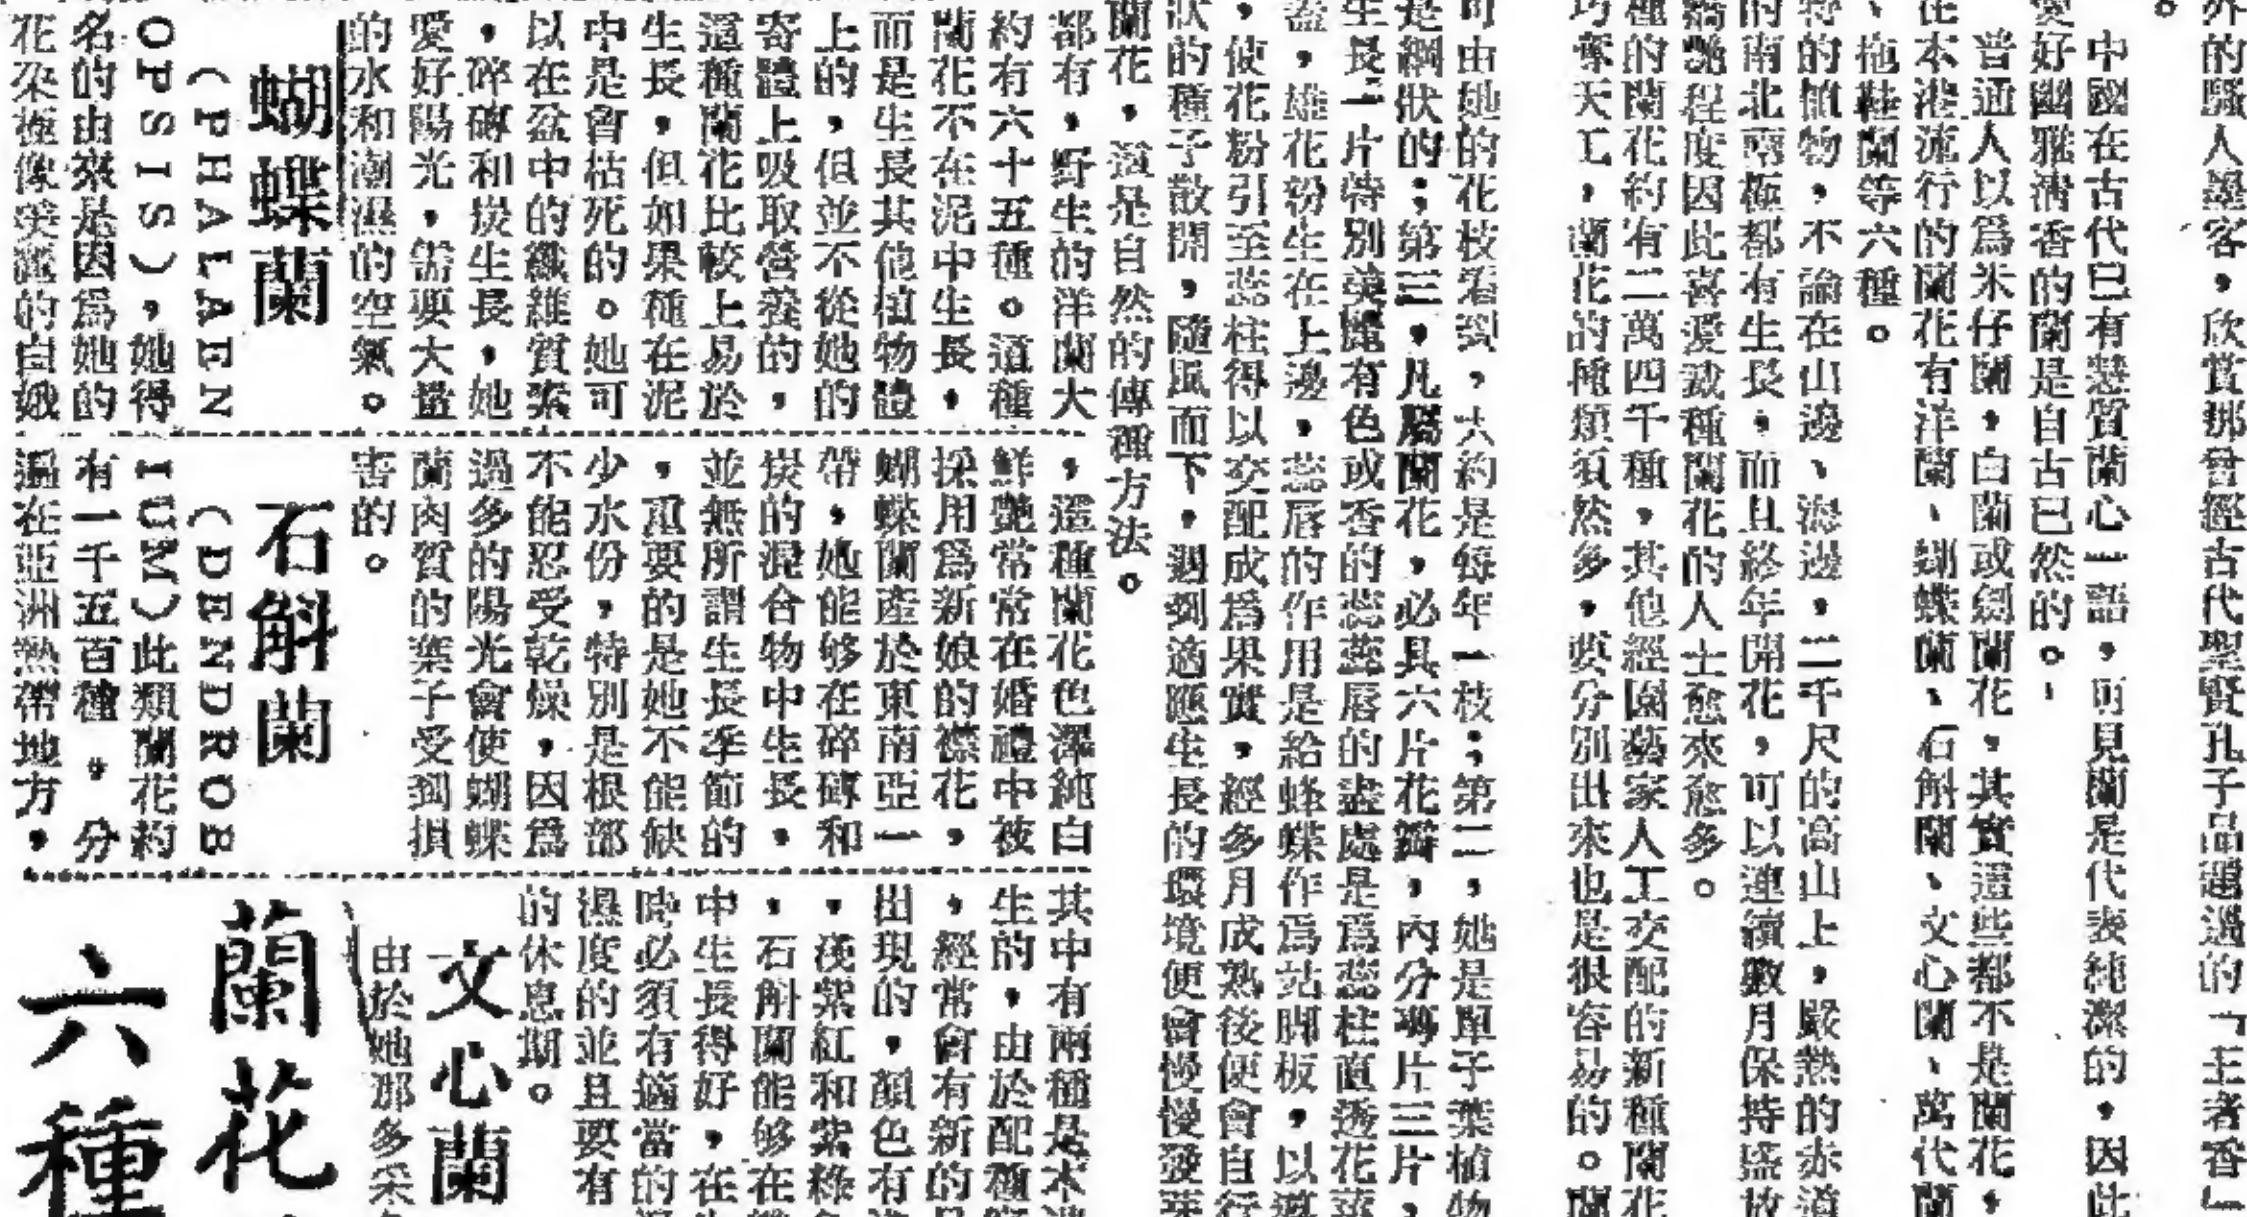 外的騷人墨客，欣賞那曾經古代聖賢孔子品題過的「王者香」
。
中國在古代已有慧質蘭心」一語，可見蘭是代表純潔的，因此
愛好幽雅清香的蘭是自古已然的。
普通人以爲米仔蘭，白蘭或劍蘭花，其實這些都不是蘭花，
在本港流行的蘭花有洋蘭、蝴蝶蘭、石斛蘭、文心蘭、萬代蘭
、拖鞋蘭等六種。
特的植物，不論在山邊、海邊，二千尺的高山上，嚴熱的赤道
的南北兩極都有生長，而且終年開花，可以連續數月保持盛放
嬌艷程度因此喜愛栽種蘭花的人士愈來愈多。
種的蘭花約有二萬四千種，其他經園藝家人工交配的新種蘭花
巧奪天工，蘭花的種類須然多，要分別出來也是很容易的。蘭
可由她的花枝看到，大約是每年一枝；第二，她是單子葉植物
是網狀的；第三，凡屬蘭花，必具六片花瓣，內分萼片三片，
生長一片特別美麗有色或香的蕊蕊唇的盡處是爲蕊柱直透花莖
蓋，雄花粉生在上邊，蕊唇的作用是給蜂蝶作爲站脚板，以導
，使花粉引至蕊柱得以交配成爲果實，經多月成熟後便會自行
狀的種子散開，隨風而下，遇到適應生長的環境便會慢慢發芽
蘭花，這是自然的傳種方法。
都有，野生的洋蘭大
約有六十五種。這種
蘭花不在泥中生長，
而是生長其他植物體
上的，但並不從她的
寄體上吸取營養的，
這種蘭花比較上易於
生長，但如果種在泥
中是會枯死的。她可
以在盆中的纖維質索
，碎磚和炭生長，她
愛好陽光，需要大量
的水和潮濕的空氣。
蝴蝶蘭
（PHALAEN
OPSIS）。她得
名的由來是因爲她的
花朶極像美麗的白蛾
，這種蘭花色潔純白
鮮艷常常在婚禮中被
採用爲新娘的襟花，
蝴蝶蘭產於東南亞一
帶，她能够在碎磚和
炭的混合物中生長，
並無所謂生長季節的
，重要的是她不能缺
少水份，特別是根部
不能忍受乾燥，因爲
過多的陽光會使蝴蝶
蘭肉質的葉子受到損
害的。
石斛蘭
（DENDROB
IUM）此類蘭花約
有一千五百種，分
遍在亞洲熱帶地方，
其中有兩種是本港
生的，由於配種
，經常會有新的
出現的，顏色有
，淺紫紅和紫綠
，石斛蘭能够在
中生長得好，在
時必須有適當的
濕度的並且要有
的休息期。
文心蘭
由於她那多采
蘭花
六種